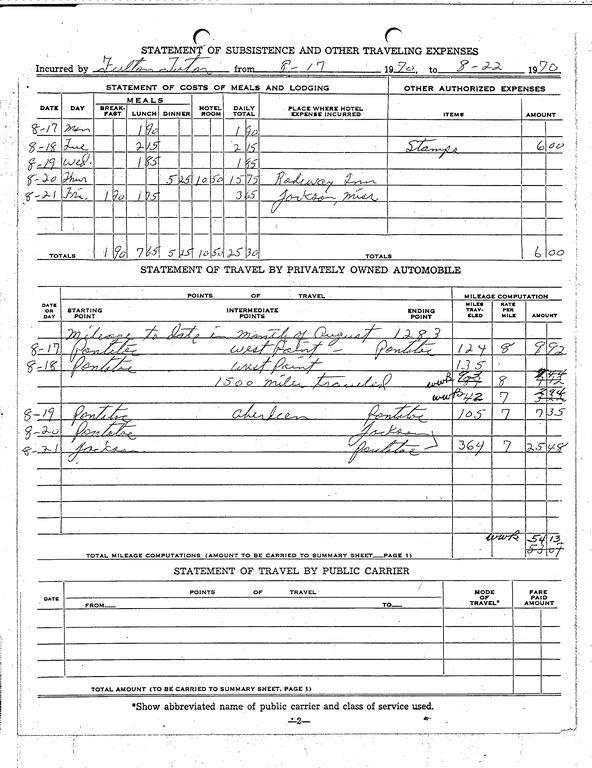 STATEMENT OF SUBSISTENCE AND OTHER TRAVELING EXPENSES
Incurred by Fulton Tutor from 8-17 1970, to 8-22 1970
STATEMENT OF COSTS OF MEALS AND LODGING OTHER AUTHORIZED EXPENSES
DATE DAY MEALS BREAK-FAST LUNCH DINNER HOTEL ROOM DAILY TOTAL PLACE WHERE HOTEL EXPENSE INCURRED ITEMS AMOUNT
8-17 Mon 1 90 1 90
8-18 Tue 2 15 2 15 Stamps 6 00
8-19 Wed. 1 85 1 85
8-20 Thur 5 25 10 50 15 75 Rodeway Inn
8-21 Fri. 1 90 1 75 3 65 Jackson, Miss
TOTALS 1 90 7 65 5 25 10 50 25 30 TOTALS 6 00
STATEMENT OF TRAVEL BY PRIVATELY OWNED AUTOMOBILE
DATE OR DAY POINTS OF TRAVEL MILEAGE COMPUTATION
STARTING POINT INTERMEDIATE POINTS ENDING POINT MILES TRAVELED RATE PER MILE AMOUNT
Mileage to date in month of August 1283
8-17 Pontotoc West Point - Pontotoc 124 8 9 92
8-18 Pontotoc West Point 135
1500 miles traveled wwB 8
wwB 42 7
8-19 Pontotoc Aberdeen Pontotoc 105 7 7 35
8-20 Pontotoc Jackson
8-21 Jackson Pontotoc 364 7 25 48
wwB 54 13
TOTAL MILEAGE COMPUTATIONS (AMOUNT TO BE CARRIED TO SUMMARY SHEET—PAGE 1) 53 07
STATEMENT OF TRAVEL BY PUBLIC CARRIER
DATE POINTS OF TRAVEL MODE OF TRAVEL* FARE PAID AMOUNT
FROM— TO—
TOTAL AMOUNT (TO BE CARRIED TO SUMMARY SHEET, PAGE 1)
*Show abbreviated name of public carrier and class of service used.
—2—